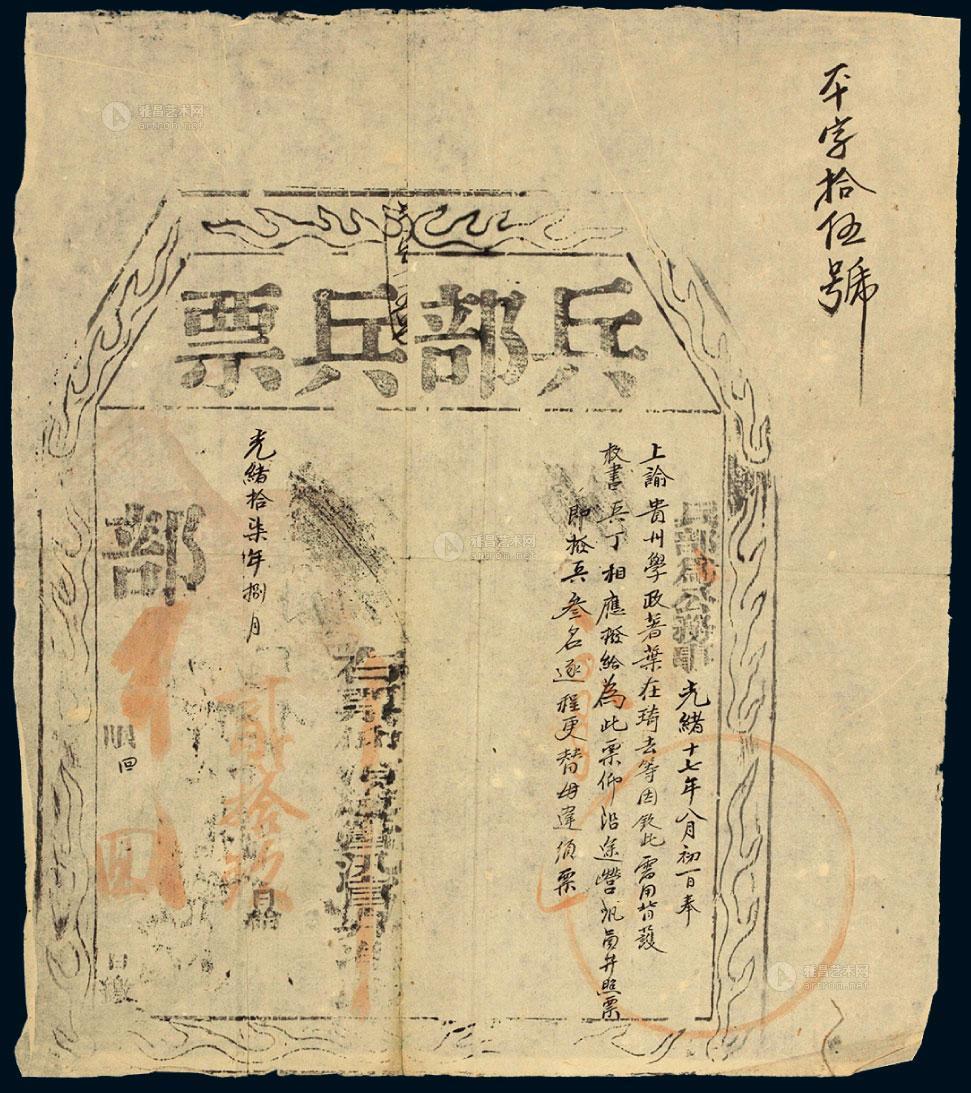 平字拾伍號
兵部兵票
兵部為公務事光緒十七年八月初一日奉
上諭貴州學政著葉在琦去等因欽此需用背護
敕書兵丁相應撥給為此票仰沿途營汛員弁照票
即撥兵叁名逐程更替毋違須票
右票
光緒拾柒年捌月
貳拾
日給
部
行
回
雅昌艺术网
artron.net
雅昌艺术网
artron.net
雅昌艺术网
artron.net